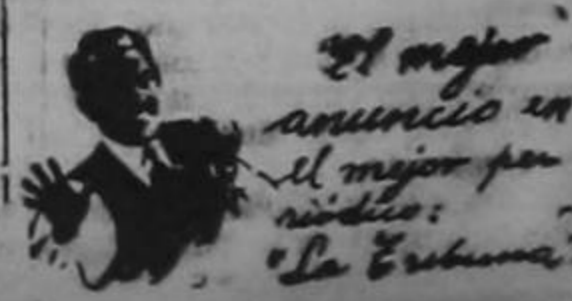 El mejor
anuncio en
el mejor pe
riódico:
"La Tribuna"